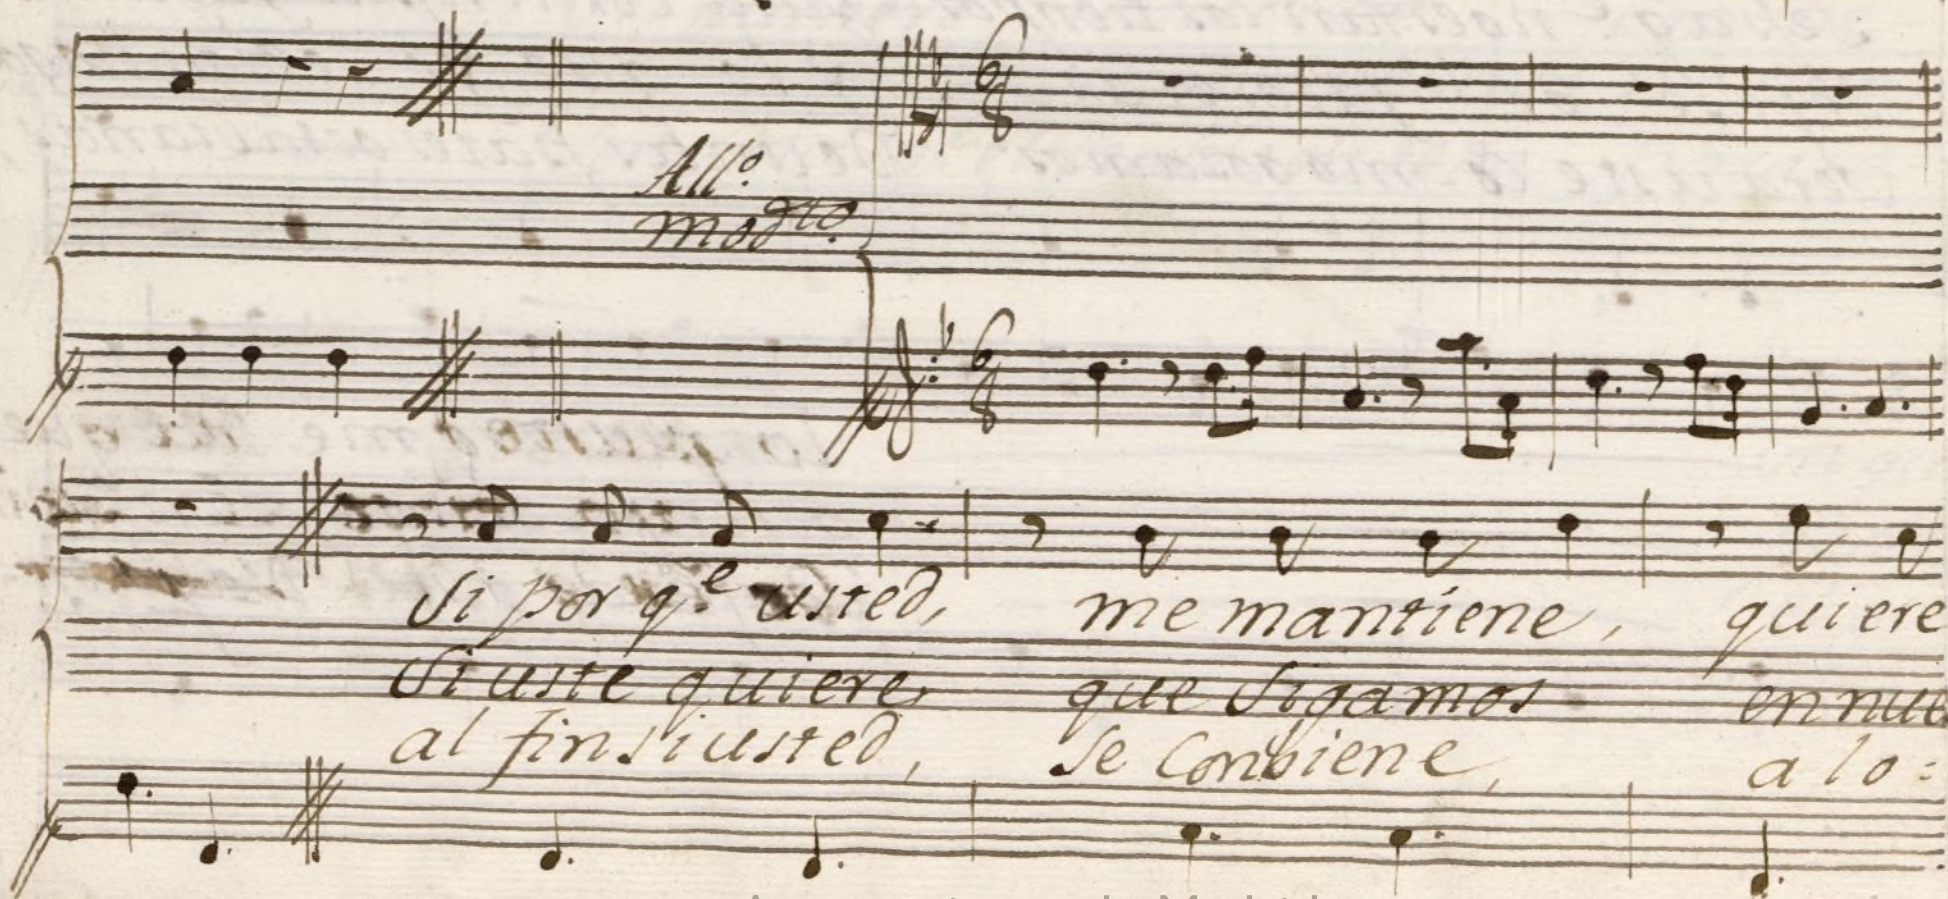 All.º
mod.to
6
8
6
8
Si por q.e usted, me mantiene, quiere
Si uste quiere, que Sigamos en nue
al fin si usted, se Conbiene, a lo=